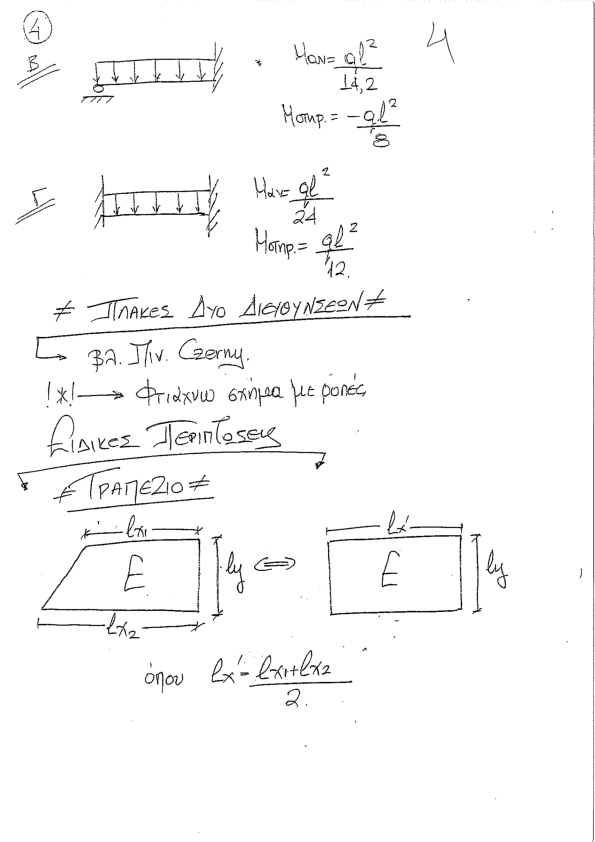 ④
4
Β
* Μαν= ql²/14,2
Μστηρ.= -ql²/8
Γ
Μαν= ql²/24
Μστηρ.= ql²/12.
≠ ΠΛΑΚΕΣ ΔΥΟ ΔΙΕΥΘΥΝΣΕΩΝ ≠
→ βλ. Πιν. Czerny.
!*! → Φτιάχνω σχήμα με ροπές
ΕΙΔΙΚΕΣ ΠΕΡΙΠΤΩΣΕΙΣ
≠ ΤΡΑΠΕΖΙΟ ≠
lx1 lx'
E ly ⇔ E ly
lx2
όπου lx' = lx1+lx2/2.